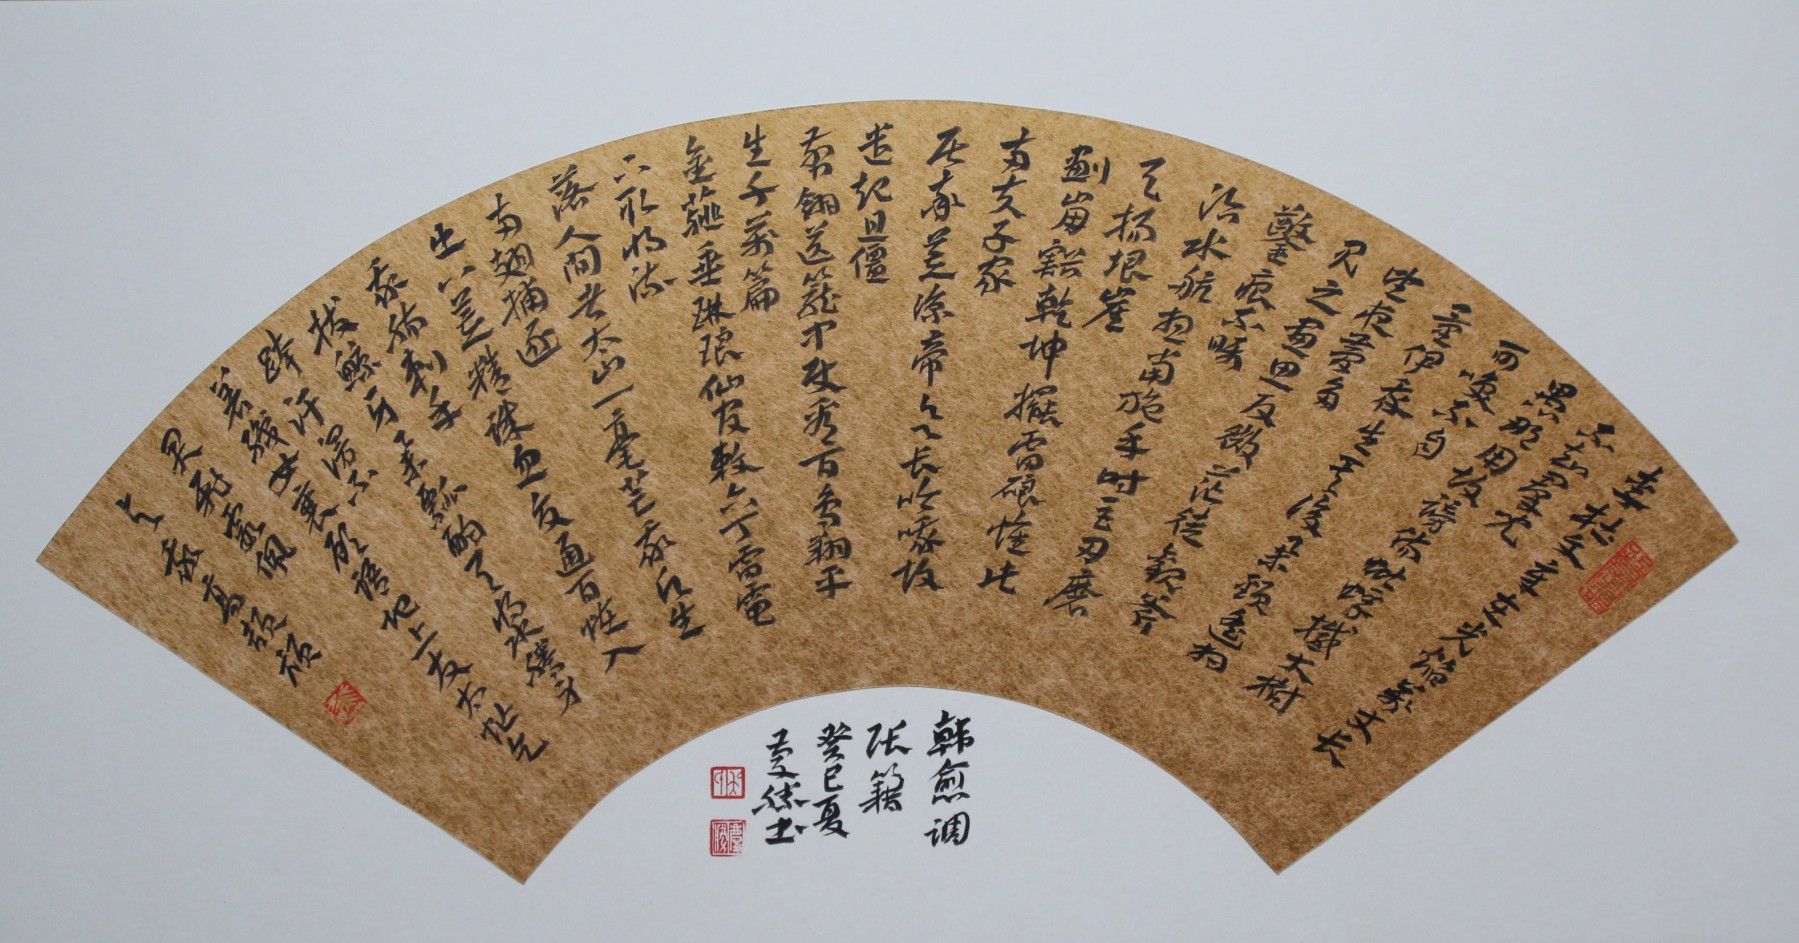 李杜文章在光焰萬丈长
不知羣児
愚那用故謗傷蚍蜉撼大樹
可唤不自
量伊我生其後举頸遥相
望夜夢多
見之畫思反微茫徒觀斧
鑿痕不瞩
治水航想當施手時巨刃磨
天扬垠崖
劃崩豁乾坤擺雷硠惟此
兩夫子家
居率荒凉帝欲长吟哦故
遣起且僵
剪翎送籠中使看百鸟翔平
生千萬篇
金薤垂琳琅仙官敕六丁雷電
下取将流
落人間者太山一毫芒我願生
兩翅捕逐
出八荒精誠忽交通百怪入
我腸刺手
拔鲸牙举瓢酌天漿腾身
跨汗漫不
著織女襄顾語地上友太忙乞
君飛霞佩
与我高颉颃
韩愈调
张籍
癸巳夏
庆勝书